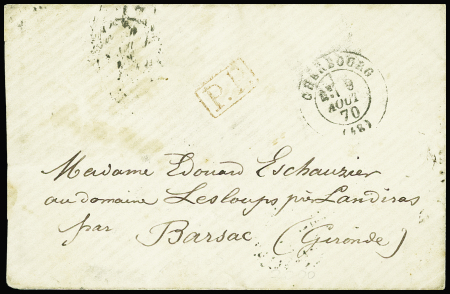 P.P.
CHERBOURG
9
AOUT
70
(48)
Madame Edouard Eschauzier
au domaine Lesloups près Landiras
par Barsac (Gironde)